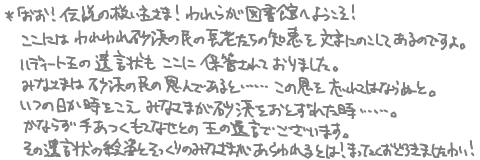 *「おお！伝説の救い主さま！われらが図書館へようこそ！
ここには われわれ砂漠の民の長老たちの知恵を 文字にのこしてあるのですよ。
ハディート王の 遺言状も ここに 保管されて おりました。
みなさまは 砂漠の民の 恩人であると……この恩を 忘れてはならぬと。
いつの日か 時をこえ みなさまが 砂漠を おとずれた時……。
かならず 手あつく もてなせとの 王の遺言で ございます。
その遺言状の絵姿と そっくりの みなさまが あらわれるとは！まったく おどろきましたわい！